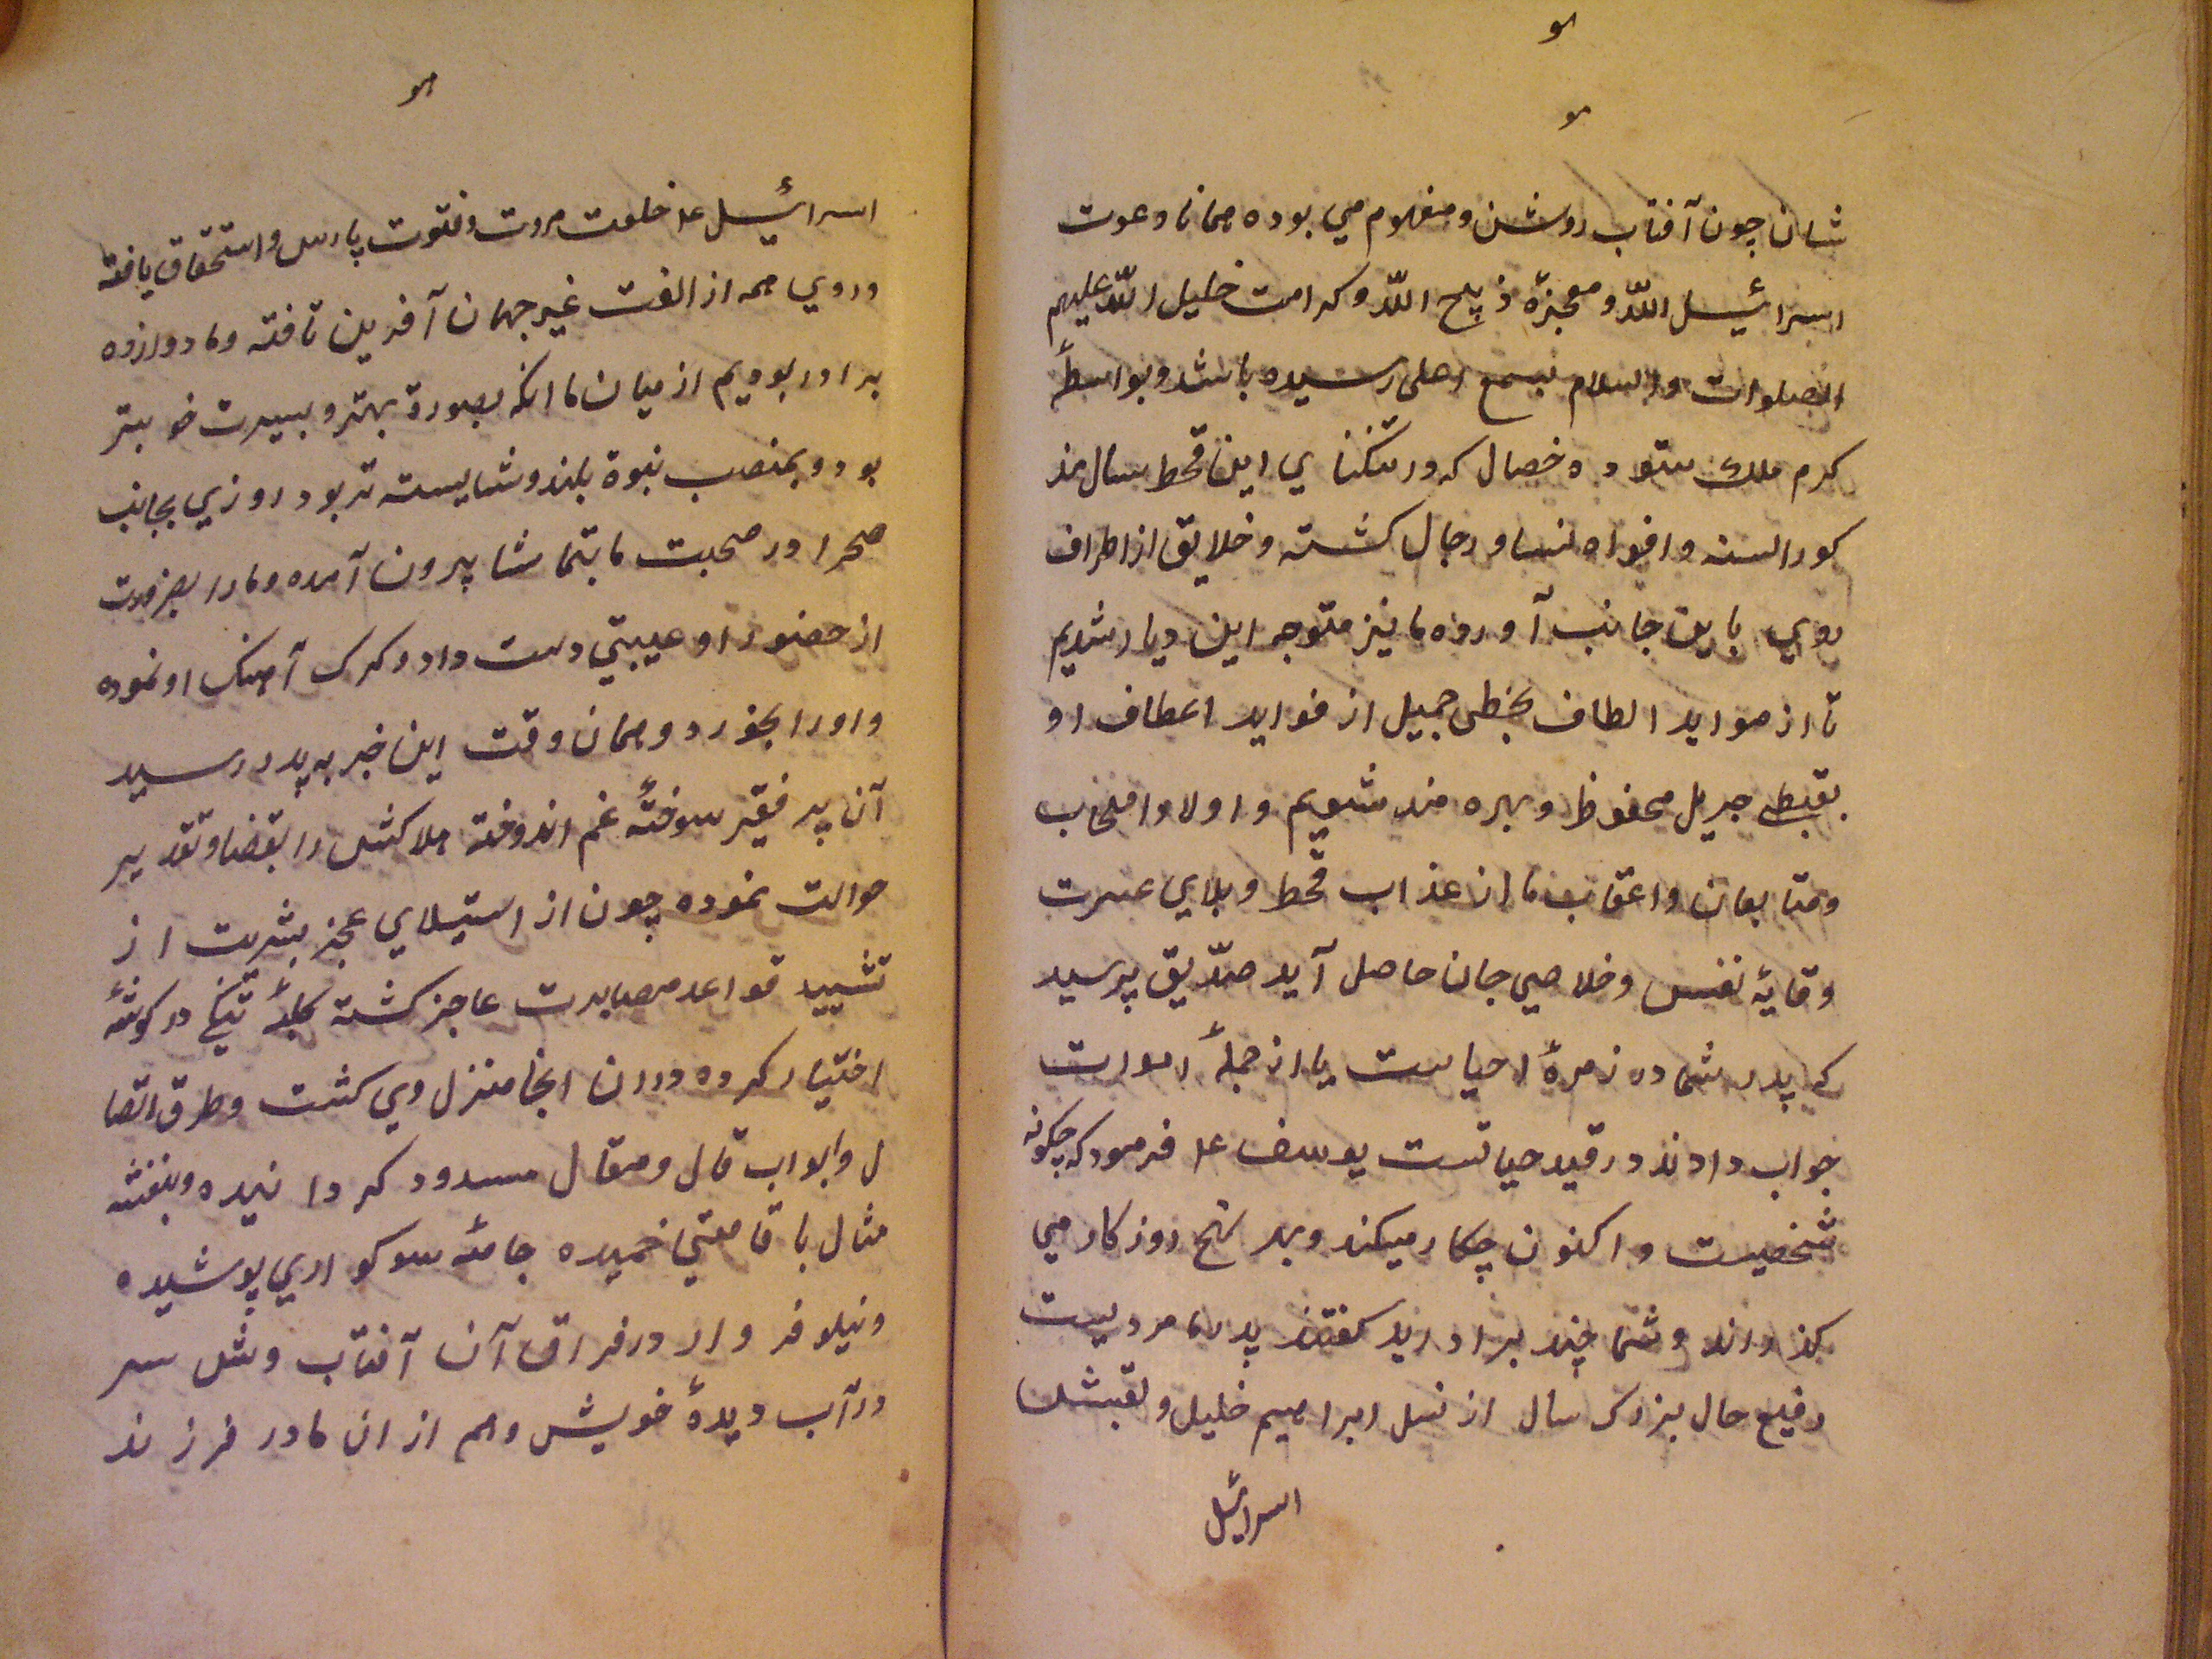 هو
هو
شان چون آفتاب روشن و مفهوم می بوده همانا دعوت
اسرائیل اللّه و معجزهٔ ذبیح اللّه و کرامت خلیل اللّه علیهم
الصلوات والسلام بسمع اهلی رسیده باشد و بواسطهٔ
کرم ملک ستوده خصال که در تنکنای این قحط سال مذ
کور السنه و افواه نسا و رجال کشته و خلایق از اطراف
روی باین جانب آورده ما نیز متوجه این دیار شدیم
تا از مواید الطاف بخطی جمیل از فواید اعطاف او
بقبطی جریل محفوظ و بهره مند شویم و اولاد و اصحاب
و متابعان و اعقاب ما از عذاب قحط و بلای عسرت
وقایهٔ نفس و خلاصی جان حاصل آید صدّیق پرسید
که پدر شما در زمرهٔ احیاست یا از جملهٔ اموات
جواب دادند در قید حیاتست یوسف ع فرمود که چکونه
شخصیت و اکنون چکار میکند و بهر نهج روزکار می
کذراند و شما چند برادرید کفتند پدر ما مردیست
رفیع حال بزرک سال از نسل ابراهیم خلیل و لقبش
اسرائیل
هو
اسرائیل ع خلعت مروت و فتوت پارس و استحقاق یافته
و روی همه از الفت غیر جهان آفرین تافته و ما دوازده
برادر بودیم از میان ما انکه بصورة بهتر و بسیرت خوبتر
بود و بمنصب نبوة بلند و شایسته تر بود روزی بجانب
صحرا در صحبت ما بتماشا بیرون آمده و ما را بضرورت
از حضور او غیبتی دست داد و کرک آهنک او نموده
و اورا بخورد و همان وقت این خبر به پدر رسید
آن پیر فقیر سوختهٔ غم اندوخته هلاکش را بقضا و تقدیر
حوالت نموده چون از استیلای عجز بشریت از
تشیید قواعد مصابرت عاجز کشته کلبهٔ تنکی در کوشهٔ
اختیار کرده و دران انجا منزل وی کشت و طرق اتصا
ل و ابواب قال و مقال مسدود کردانیده و بنفشه
مثال با قامتی خمیده جامهٔ سوکواری پوشیده
و نیلوفر وار در فراق آن آفتاب وش سر
در آب دیدهٔ خویش و هم از ان مادر فرزند